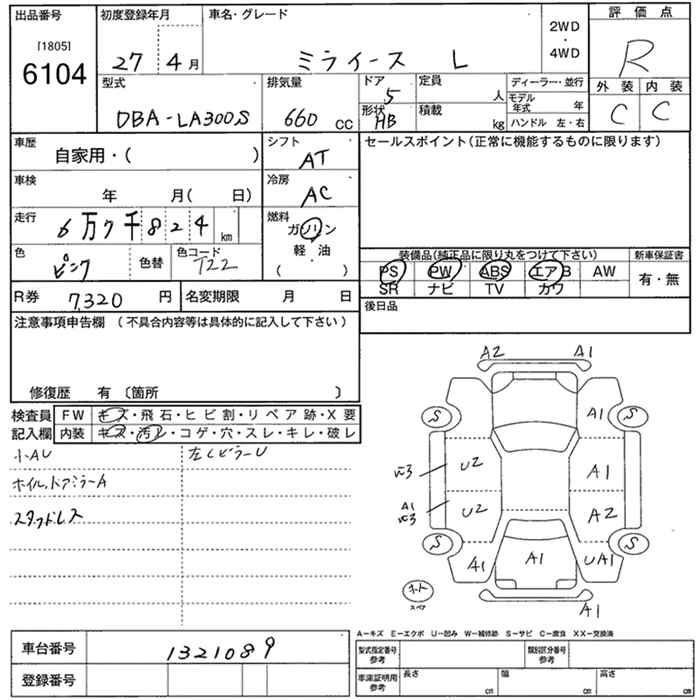 出品番号 初度登録年月 車名・グレード 2WD ・ 4WD 評価点
[1805]
6104 27 4月 ミライース L R
外装 内装
C C
型式 排気量 ドア 定員 ディーラー・並行
DBA-LA300S 660 CC 5 人 モデル年式 年
形状 HB 積載 kg ハンドル 左・右
車歴 シフト セールスポイント(正常に機能するものに限ります)
自家用・( ) AT
車検 冷房
年 月( 日) AC
走行 燃料
6万7千824 km ガソリン
軽・油
( )
色 色替 色コード 装備品(純正品に限り丸をつけて下さい) 新車保証書
ピンク T22 PS PW ABS エアB AW 有・無
SR ナビ TV カワ
R券 7,320 円 名変期限 月 日 後日品
注意事項申告欄 (不具合内容等は具体的に記入して下さい)
修復歴 有 〔箇所 〕
検査員 FW キズ・飛石・ヒビ割・リペア跡・X要
記入欄 内装 キズ・汚レ・コゲ・穴・スレ・キレ・破レ
小AU 左CピラーU
ホイル,ドアミラーA
スタッドレス
A2 A1
S A1 S
U2 A1
A1 U2 A2
S A1 A1 UA1 S
スペア A1
A-キズ E-エクボ U-凹み W-補修跡 S-サビ C-腐食 XX-交換済
車台番号 1321089
登録番号
型式指定番号 参考 類別区分番号 参考
車庫証明用 参考 長さ cm 幅 cm 高さ cm